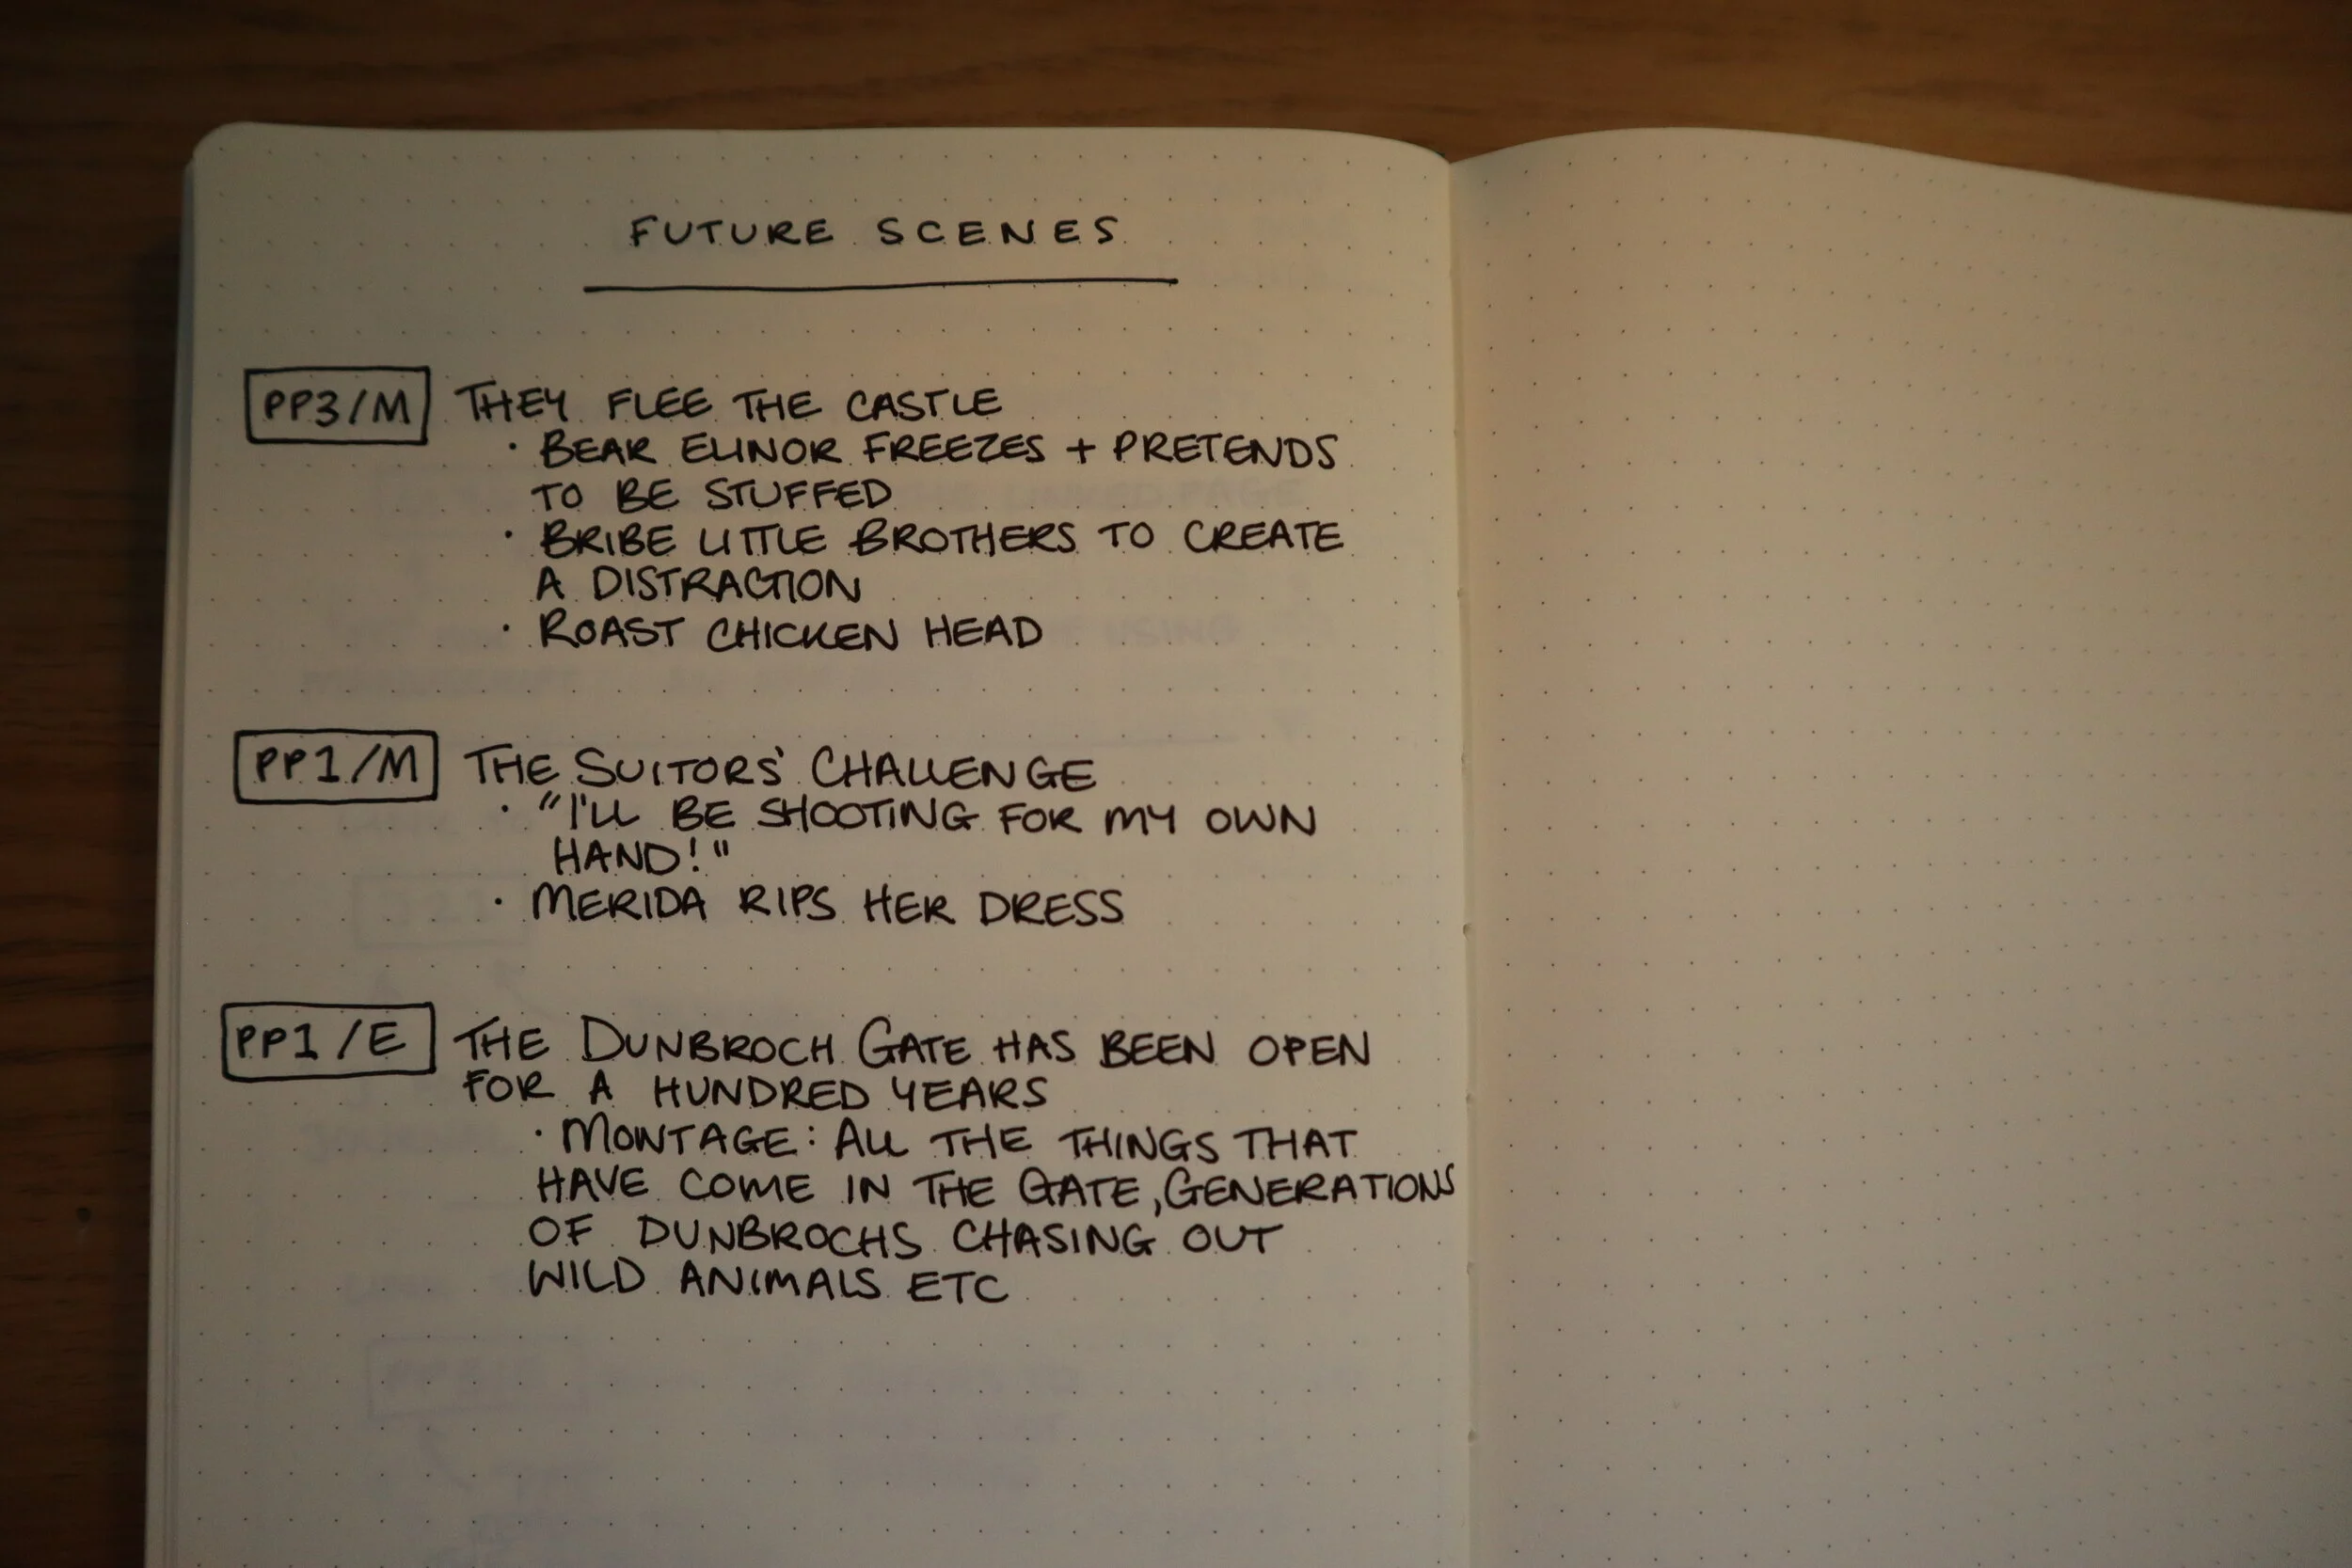 FUTURE SCENES
PP3/M THEY FLEE THE CASTLE
· BEAR ELINOR FREEZES + PRETENDS
TO BE STUFFED
· BRIBE LITTLE BROTHERS TO CREATE
A DISTRACTION
· ROAST CHICKEN HEAD
PP1/M THE SUITORS' CHALLENGE
· "I'LL BE SHOOTING FOR MY OWN
HAND!"
· MERIDA RIPS HER DRESS
PP1/E THE DUNBROCH GATE HAS BEEN OPEN
FOR A HUNDRED YEARS
· MONTAGE: ALL THE THINGS THAT
HAVE COME IN THE GATE, GENERATIONS
OF DUNBROCHS CHASING OUT
WILD ANIMALS ETC